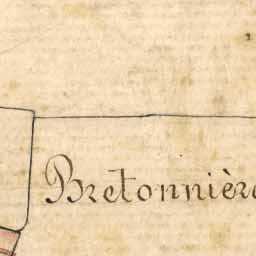 Bretonnière